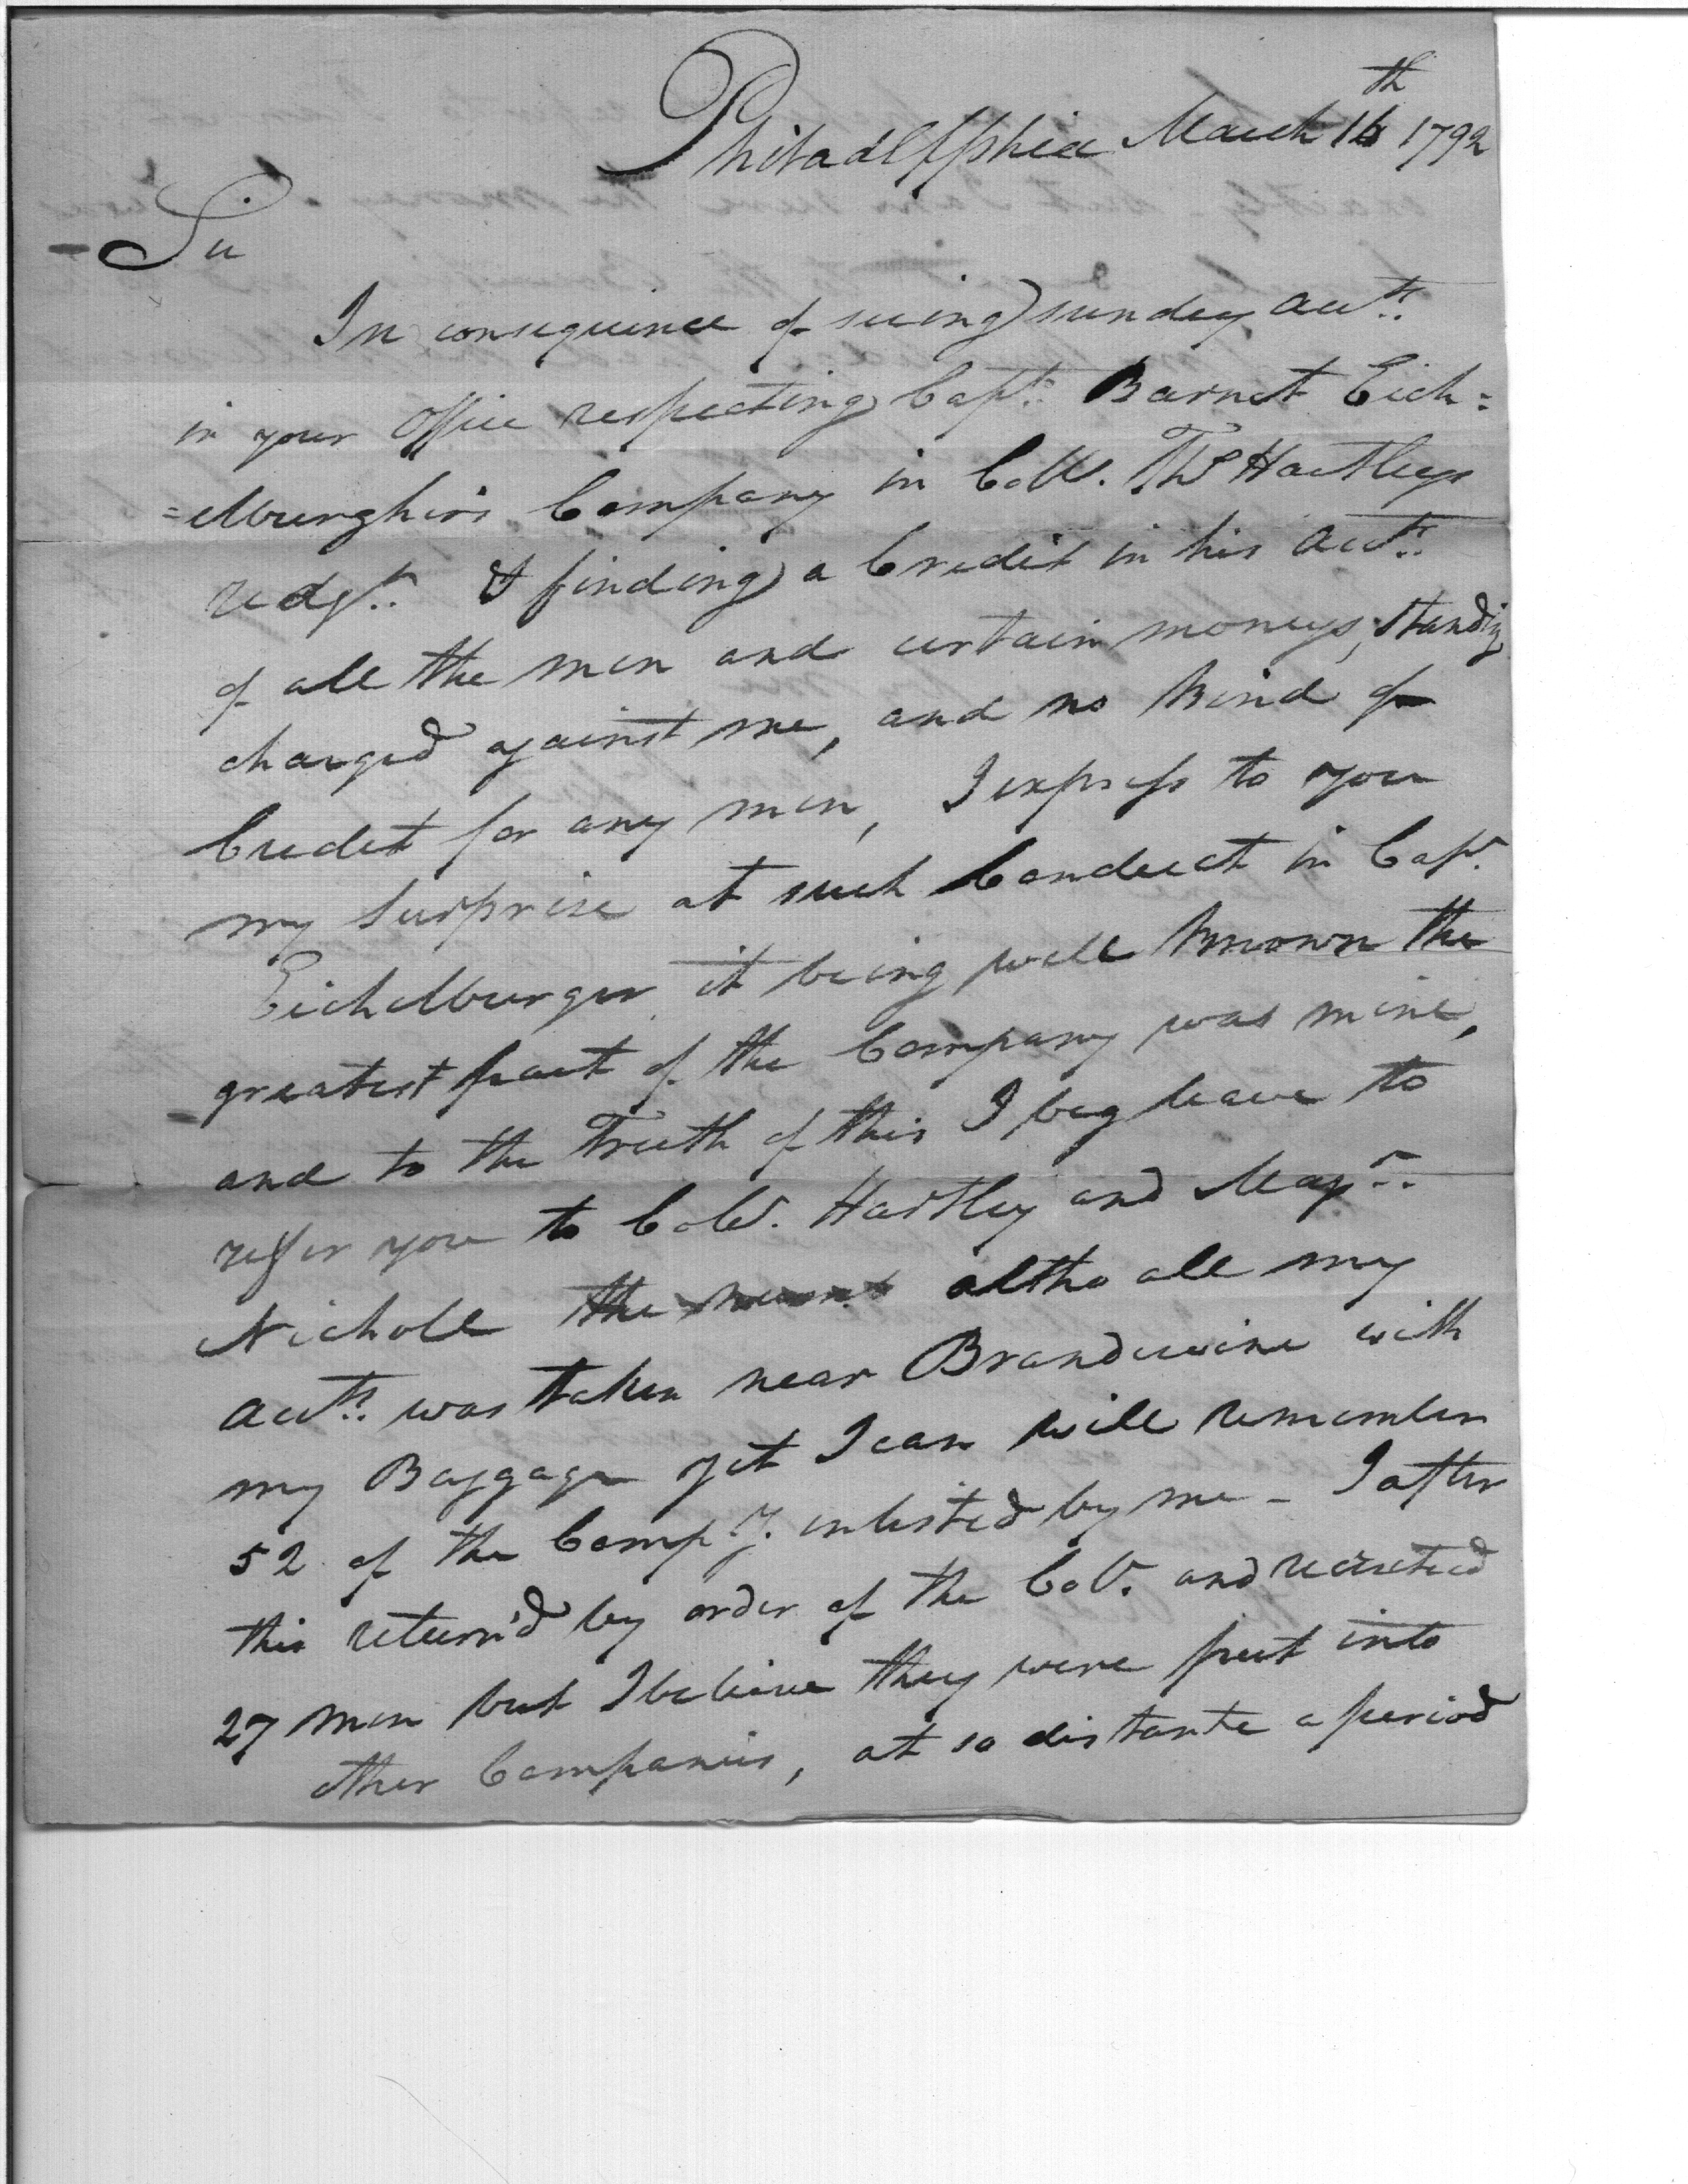 Philadelphia March 16th 1792
Sir
In consequence of seeing sundry Accts.
in your Office respecting Capt. Barnet Eich=
=elburgher's Company in Coll. Ths Hartleys
Redgt. & finding a Credit in his Acct.
of all the men and certain moneys, standig
charged against me, and no kind of
Credet for any men, I express to you
my surprise at such Conduct in Capt.
Eichelburger it being well known the
greatest part of the Company was mine,
and to the Truth of this I beg leave to
refer you to Coll. Hartley and Majr.
Nicholl the altho all my
Accts. was taken near Brandewine with
my Baggage yet I can will remember
52 of the Compy. enlisted by me - I after
this return'd by order of the Col. and recruted
27 men but I believe they were put into
other Companies, at so distante a period